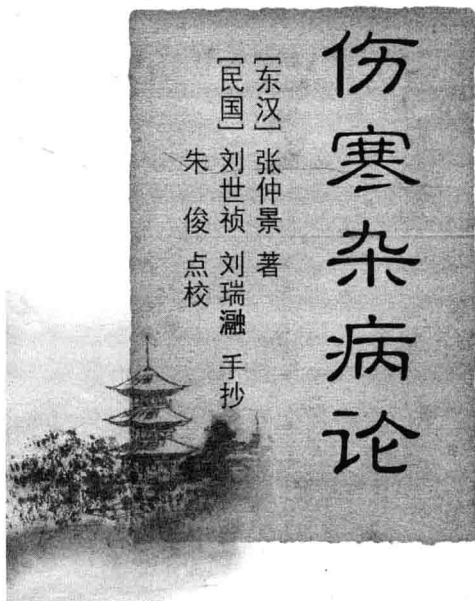 伤寒杂病论
［东汉］ 张仲景 著
［民国］ 刘世祯 刘瑞瀜 手抄
朱 俊 点校